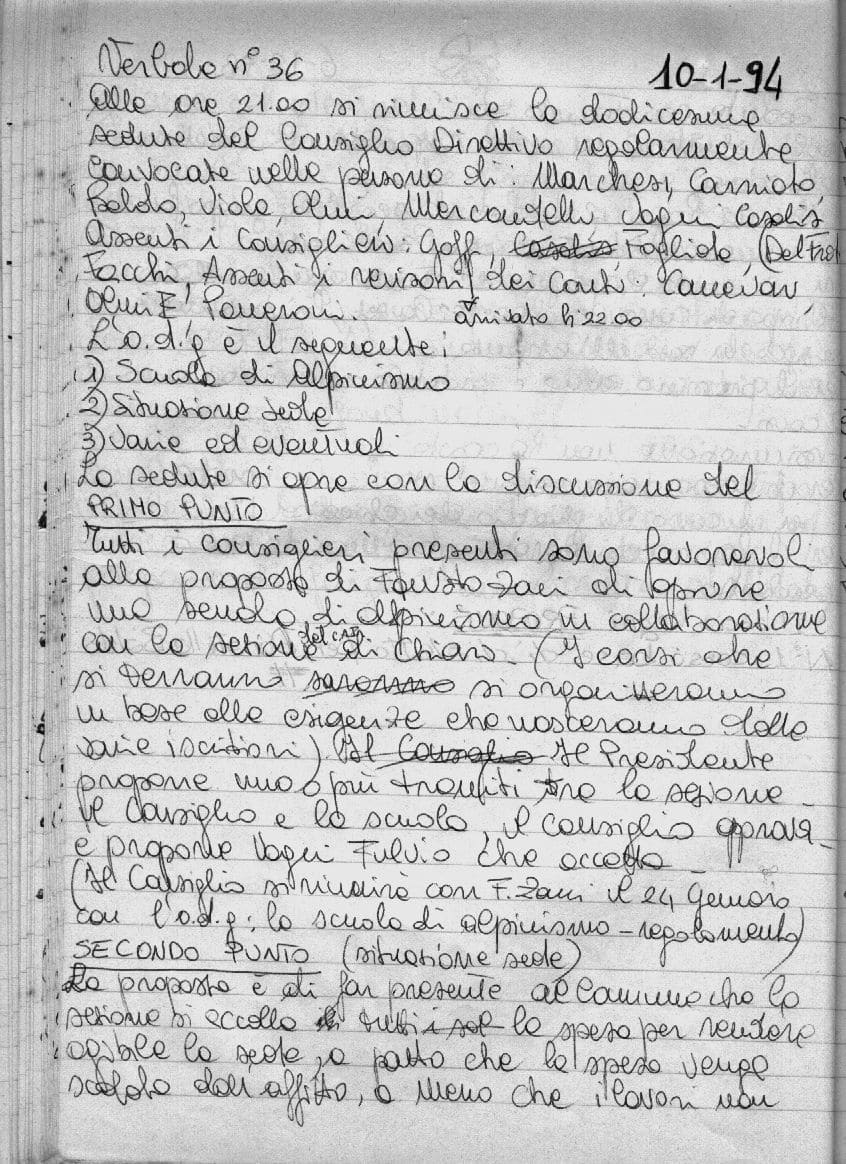 Verbale n° 36
10-1-94
Alle ore 21.00 si riunisce la dodicesima
seduta del Consiglio Direttivo regolarmente
convocata nelle persone di: Marchesi, Carnioto,
Boldo, Viola, Olmi Mercandelli Vagni Casalis
Assenti i Consiglieri: Goffi, Casalis Fogliata, (Dal Frà
Facchi, Assenti i revisori dei Conti:
Olmi E.
arrivato h 22.00
L'o.d.g è il seguente:
1) Scuola di Alpinismo
2) Situazione sede
3) Varie ed eventuali
La seduta si apre con la discussione del
PRIMO PUNTO
Tutti i consiglieri presenti sono favorevoli
alla proposta di Fausto Zani di aprire
una scuola di alpinismo in collaborazione
con la sezione del CAI di Chiari. (I corsi che
si terranno saranno si organizzeranno
in base alle esigenze che nasceranno dalle
varie iscrizioni). Il Consiglio Il Presidente
propone uno o più tramiti tra la sezione
il Consiglio e la scuola, il Consiglio approva
e propone Vagni Fulvio che accetta
(Il Consiglio si riunirà con F. Zani il 24 Gennaio
con l'o.d.g: la scuola di alpinismo - regolamento)
SECONDO PUNTO (situazione sede)
La proposta è di far presente al Comune che la
sezione si accolla di tutti i sol la spesa per rendere
agibile la sede, a patto che la spesa venga
scalata dall'affitto, a meno che i lavori non